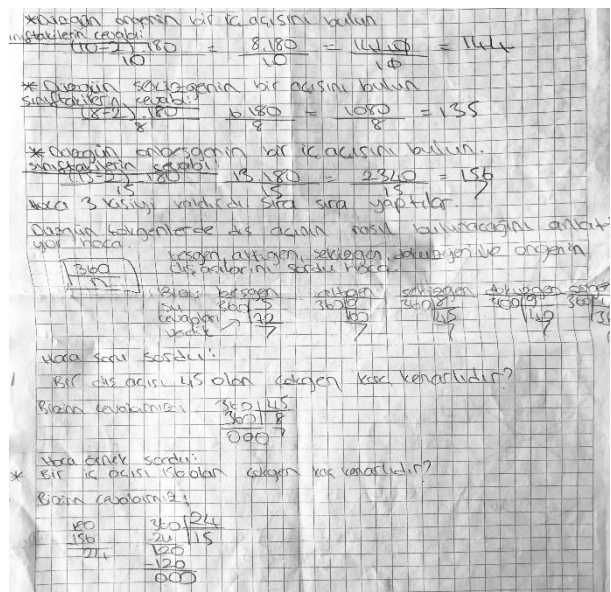 *Düzgün ongenin bir iç açısını bulun
sınıftakilerin cevabı:
(10-2).180 / 10 = 8.180 / 10 = 1440 / 10 = 144
*Düzgün sekizgenin bir açısını bulun
sınıftakilerin cevabı:
(8-2).180 / 8 6.180 / 8 = 1080 / 8 = 135
*Düzgün onbeşgenin bir iç açısını bulun.
sınıftakilerin cevabı:
(15-2).180 / 15 13.180 / 15 = 2340 / 15 = 156
Hoca 3 kişiyi kaldırdı sıra sıra yaptılar.
Düzgün çokgenlerde dış açının nasıl bulunacağını anlatı-
yor hoca.
360 / n
beşgen, altıgen, sekizgen, dokuzgen ve ongenin
dış açılarını sordu Hoca.
Bizi beşgen altıgen sekizgen dokuzgen ongen
bu 360 | 5 360 | 6 360 | 8 360 | 9
cevapları 72 60 45 40 36
verdik
Hoca soru sordu:
Bir dış açısı 45 olan çokgen kaç kenarlıdır?
Bizim cevabımız: 360 | 45
360 | 8
000
Hoca örnek sordu:
* Bir iç açısı 156 olan çokgen kaç kenarlıdır?
Bizim cevabımız:
180 360 | 24
156 24 | 15
24 120
-120
000